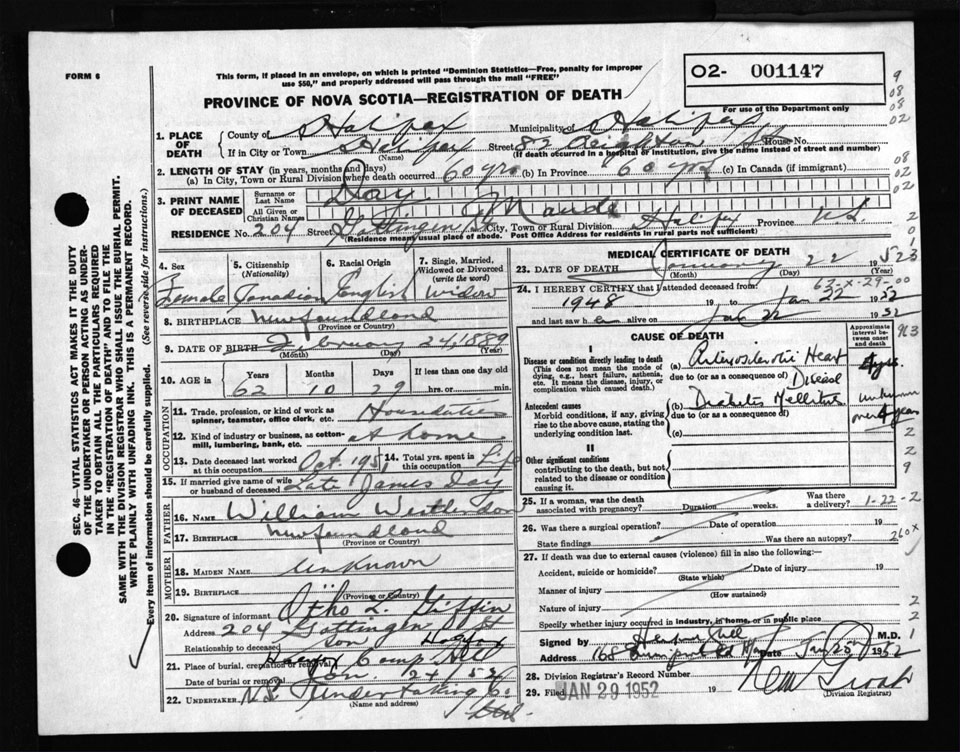 FORM 6
This form, if placed in an envelope, on which is printed "Dominion Statistics—Free, penalty for improper
use $50," and properly addressed will pass through the mail "FREE"
O2- 001147
PROVINCE OF NOVA SCOTIA—REGISTRATION OF DEATH
For use of the Department only
1. PLACE OF DEATH
County of Halifax Municipality of Halifax
If in City or Town Halifax Street 82 Creighton St House No.
(Name) (If death occurred in a hospital or institution, give the name instead of street and number)
2. LENGTH OF STAY (in years, months and days)
(a) In City, Town or Rural Division where death occurred 60 yrs (b) In Province 60 yrs (c) In Canada (if immigrant)
3. PRINT NAME OF DECEASED
Surname or Last Name Day
All Given or Christian Names Maude
RESIDENCE No. 204 Street Gottingen St City, Town or Rural Division Halifax Province N.S.
(Residence means usual place of abode. Post Office Address for residents in rural parts not sufficient)
4. Sex Female
5. Citizenship (Nationality) Canadian
6. Racial Origin English
7. Single, Married, Widowed or Divorced (write the word) Widow
8. BIRTHPLACE Newfoundland
(Province or Country)
9. DATE OF BIRTH February 24, 1889
(Month) (Day) (Year)
10. AGE in Years Months Days If less than one day
62 10 29 hrs. or min.
OCCUPATION
11. Trade, profession, or kind of work as spinner, teamster, office clerk, etc. Housduties
12. Kind of industry or business, as cotton-mill, lumbering, bank, etc. at home
13. Date deceased last worked at this occupation Oct. 1951
14. Total yrs. spent in this occupation Life
15. If married give name of wife or husband of deceased Late James Day
FATHER
16. NAME William
17. BIRTHPLACE Newfoundland
(Province or Country)
MOTHER
18. MAIDEN NAME Unknown
19. BIRTHPLACE
(Province or Country)
20. Signature of informant Otho L. Giffin
Address 204 Gottingen St
Relationship to deceased son Halifax
21. Place of burial, cremation or removal Camp Hill
Date of burial or removal Jan. 24 1952
22. UNDERTAKER N.S. Undertaking Co
(Name and address)
MEDICAL CERTIFICATE OF DEATH
23. DATE OF DEATH January 22 1952
(Month) (Day) (Year)
24. I HEREBY CERTIFY that I attended deceased from:
1948 19 to Jan 22 1952
and last saw h er alive on Jan 22 1952
CAUSE OF DEATH
Approximate interval between onset and death
I
Disease or condition directly leading to death
(This does not mean the mode of dying, e.g., heart failure, asthenia, etc. It means the disease, injury, or complication which caused death.)
(a) Arteriosclerotic Heart
due to (or as a consequence of) Disease
Antecedent causes
Morbid conditions, if any, giving rise to the above cause, stating the underlying condition last.
(b) Diabetes Mellitus
due to (or as a consequence of)
(c)
unknown
over 4 years
II
Other significant conditions
contributing to the death, but not related to the disease or condition causing it.
25. If a woman, was the death associated with pregnancy? Duration weeks. Was there a delivery?
1-22-2
26. Was there a surgical operation? Date of operation 19
State findings Was there an autopsy?
260X
27. If death was due to external causes (violence) fill in also the following:—
Accident, suicide or homicide? Date of injury 19
(State which)
Manner of injury
(How sustained)
Nature of injury
Specify whether injury occurred in industry, in home, or in public place
Signed by M.D.
Address 168 Date Jan 25 1952
28. Division Registrar's Record Number
29. Filed JAN 29 1952 19
(Division Registrar)
SEC. 46— VITAL STATISTICS ACT MAKES IT THE DUTY
OF THE UNDERTAKER OR PERSON ACTING AS UNDER-
TAKER TO OBTAIN ALL THE PARTICULARS REQUIRED
IN THE "REGISTRATION OF DEATH" AND TO FILE THE
SAME WITH THE DIVISION REGISTRAR WHO SHALL ISSUE THE BURIAL PERMIT.
WRITE PLAINLY WITH UNFADING INK. THIS IS A PERMANENT RECORD.
Every item of information should be carefully supplied. (See reverse side for instructions.)